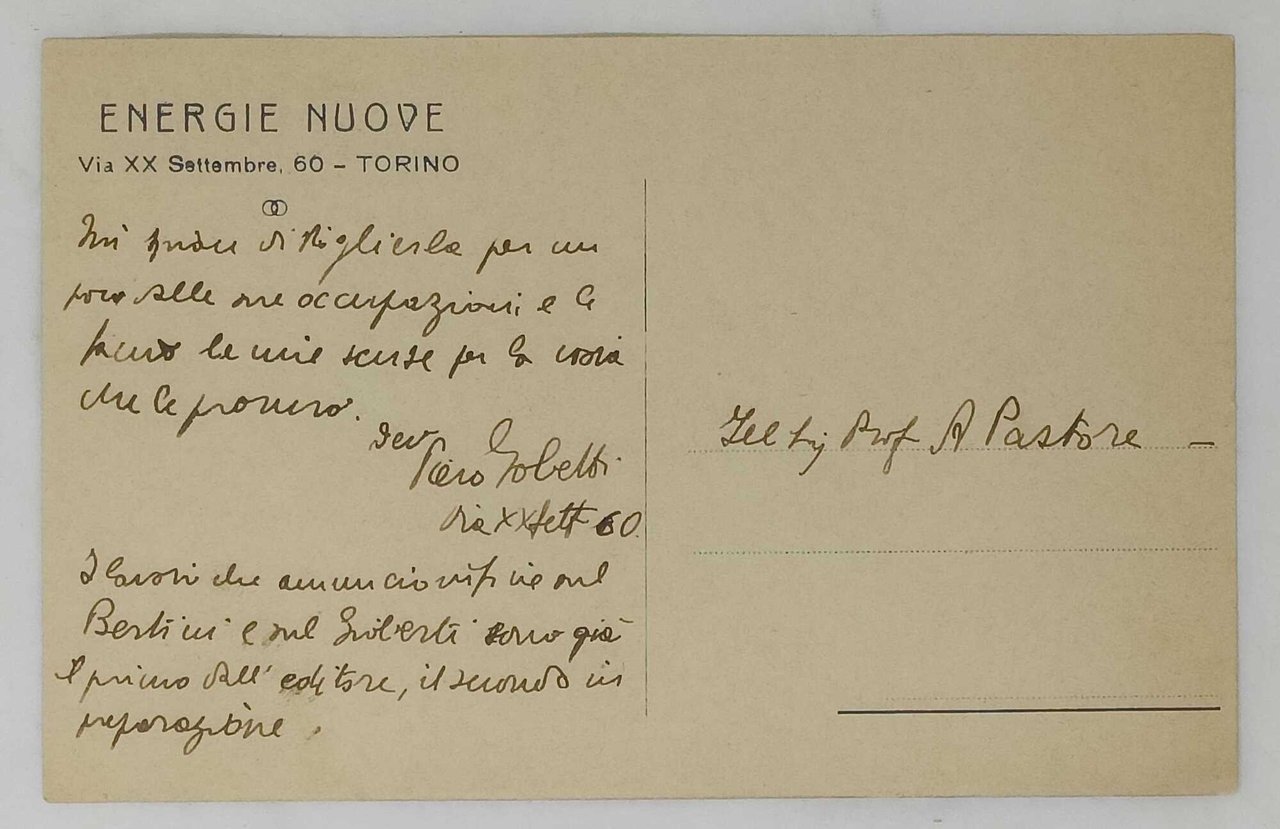 ENERGIE NUOVE
Via XX Settembre, 60 – TORINO
Mi di toglierla per un
poco alle sue occupazioni e le
faccio le mie scuse per la
che le
dev
Piero Gobetti
Via XX Sett 60.
I lavori che annuncio infine sul
Bertini e sul Gioberti sono già
il primo dall' editore, il secondo in
preparazione.
Prof A Pastore –